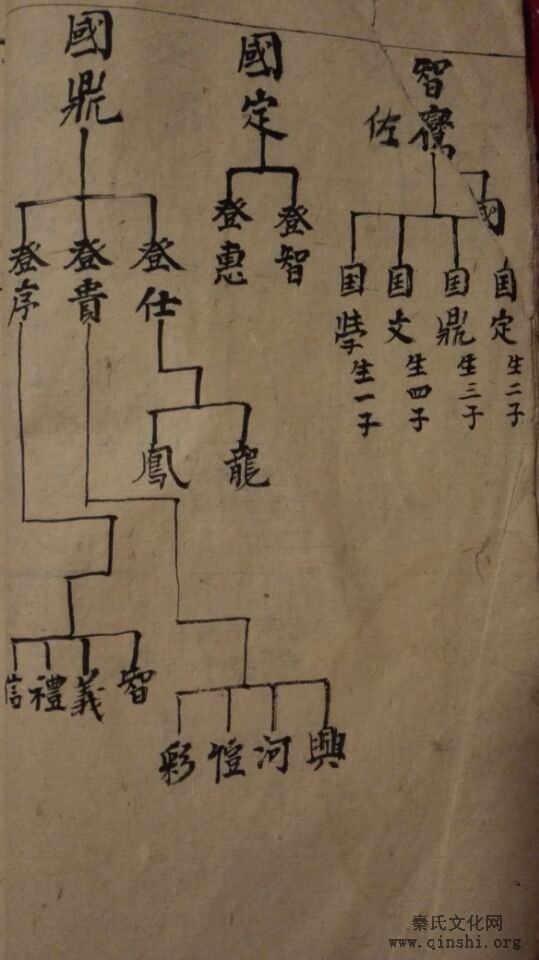 智
佐
國
国定
生二子
国鼎
生三子
国文
生四子
国學
生一子
國定
登智
登惠
國鼎
登仕
登貴
登序
龍
鳳
興
河
愷
彩
智
義
禮
信
秦氏文化网
www.qinshi.org